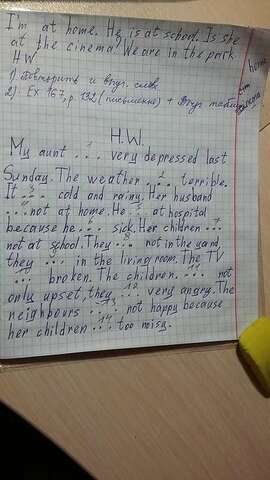 I'm at home. He is at school. Is she
at the cinema? We are in the park
H.W
1) Повторить и выуч. слова
2) Ex 167, p. 132 (письменно) + Выуч табл
H.W.
My aunt ... very depressed last
Sunday. The weather ...2 terrible.
It ...3 cold and rainy. Her husband
...not at home. He ... at hospital
because he ... sick. Her children ...7
not at school. They ...8 not in the yard,
they ...9 in the living room. The TV
... broken. The children ...11 not
only upset, they ...12 very angry. The
neighbours ...13 not happy because
her children ...14 too noisy.